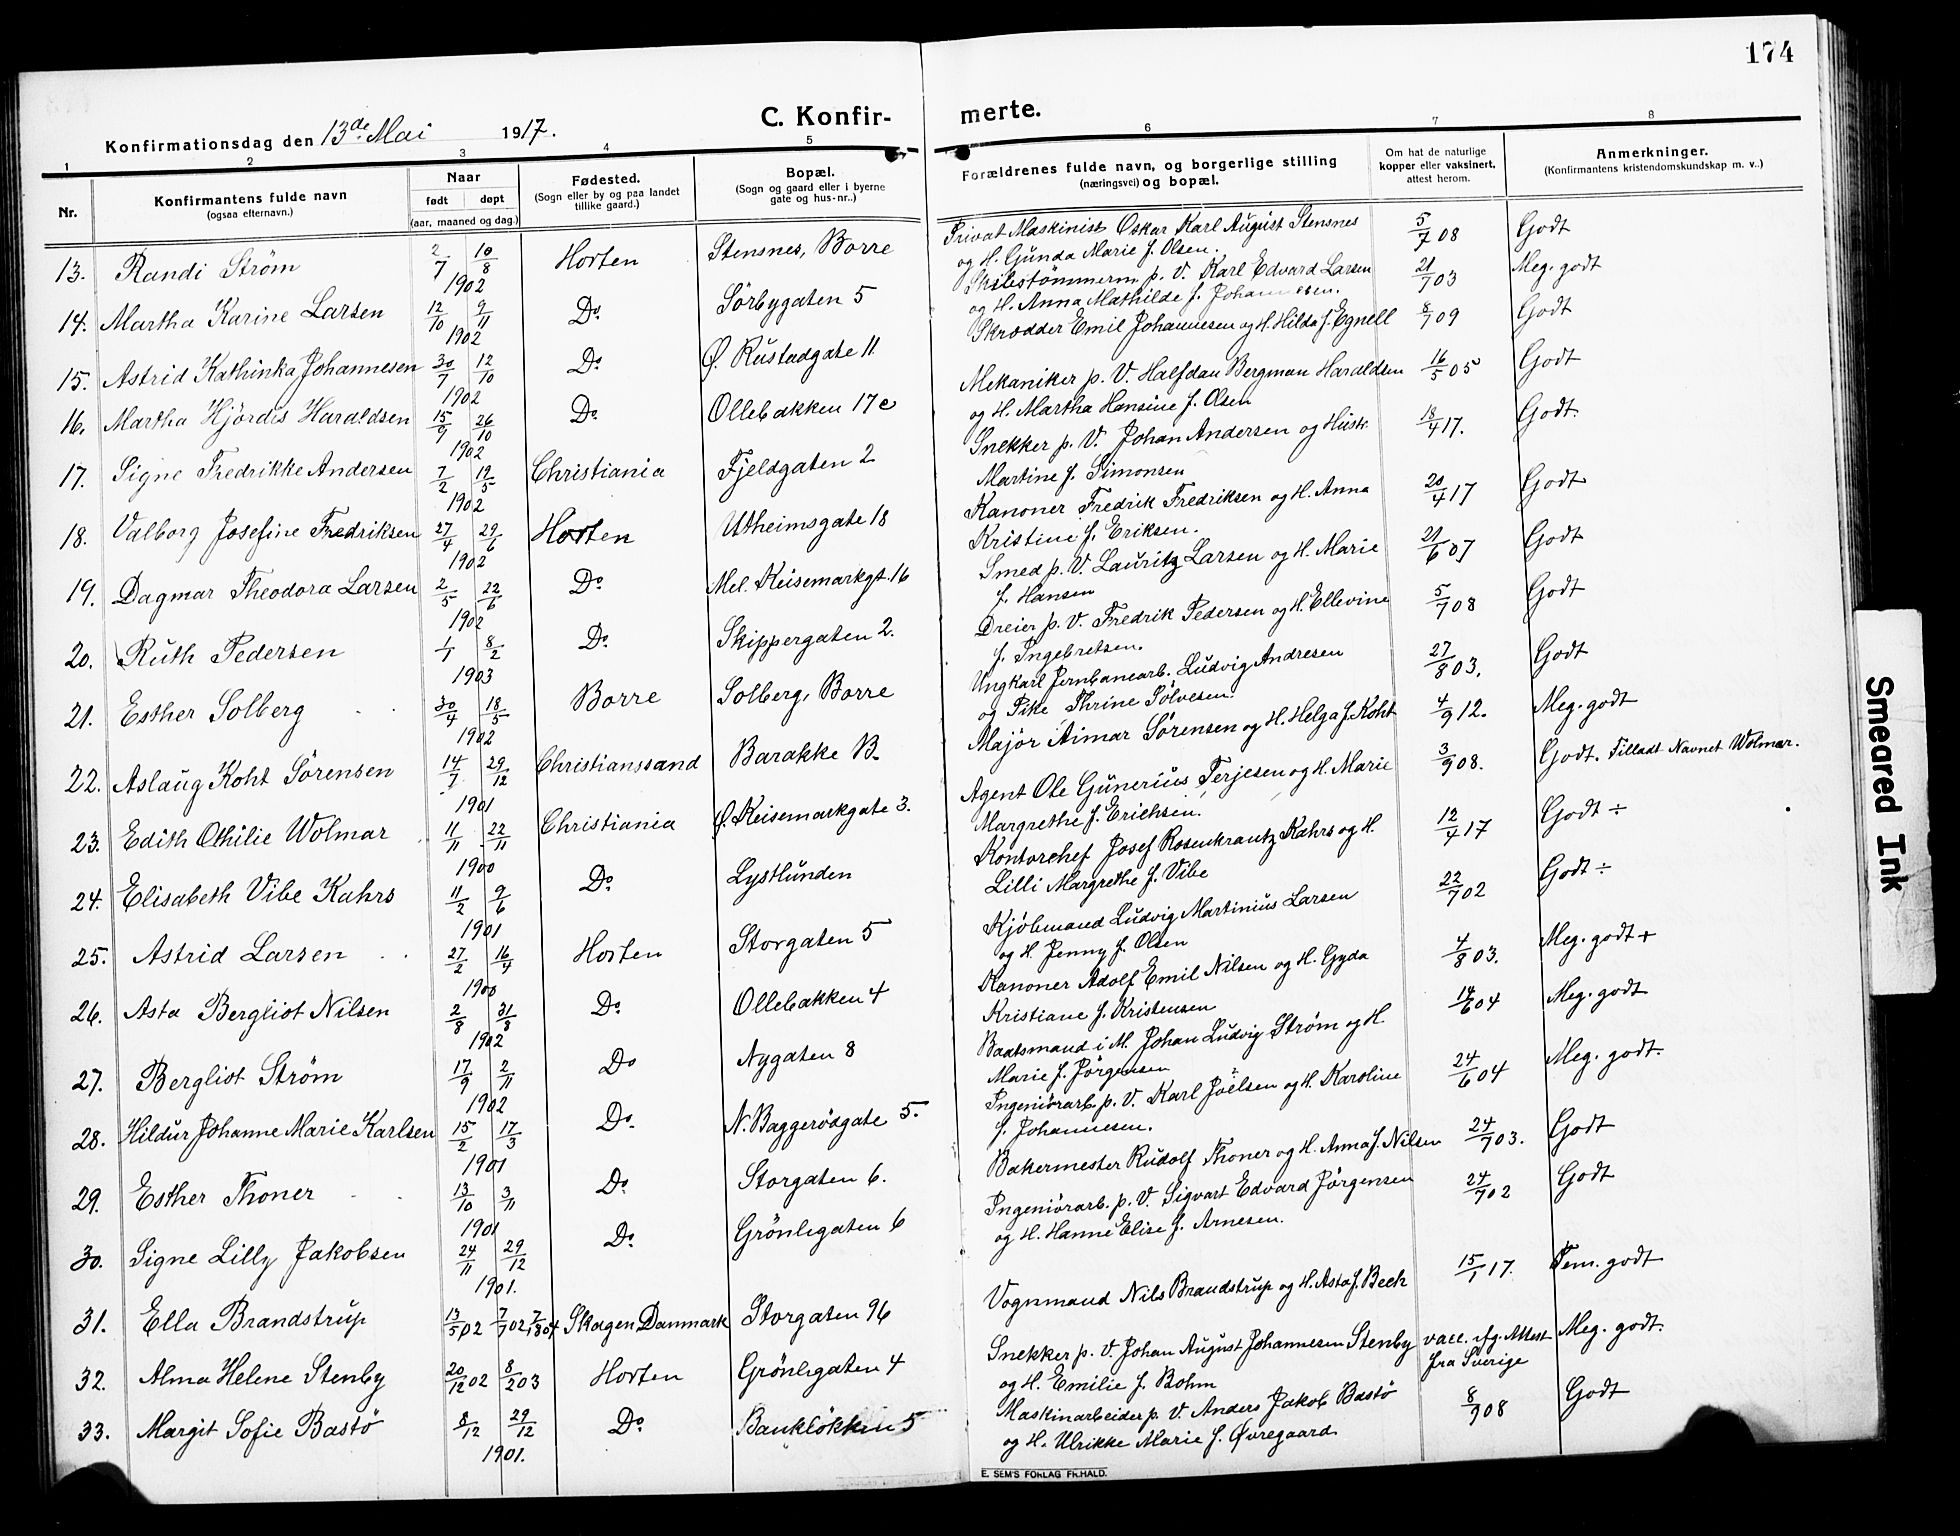 174
C. Konfirmerte.
Konfirmationsdag den 13de Mai 1917.
1 2 3 4 5 6 7 8
Nr.
Konfirmantens fulde navn
(ogsaa efternavn.)
Naar
født døpt
(aar, maaned og dag.)
Fødested.
(Sogn eller by og paa landet
tillike gaard.)
Bopæl.
(Sogn og gaard eller i byerne
gate og hus-nr..)
Forældrenes fulde navn, og borgerlige stilling
(næringsvei) og bopæl.
Om hat de naturlige
kopper eller vaksinert,
attest herom.
Anmerkninger.
(Konfirmantens kristendomskundskap m. v..)
13. Randi Strøm 2/7 10/8 1902 Horten Stensnes, Borre Privat Maskinist Oskar Karl August Stensnes 5/7 08 Godt
og H. Gunda Marie f. Olsen.
14. Martha Karine Larsen 12/10 9/11 1902 Do. Sörbygaten 5 Skibstömmerm. p. V. Karl Edvard Larsen 21/7 03 Meg. godt
og H. Anna Mathilde f. Johannesen.
15. Astrid Kathinka Johannesen 30/7 12/10 1902 Do. Ø. Rustadgate 11 Skrædder Emil Johannesen og H. Hilda f. Egnell 8/7 09 Godt
16. Martha Hjördis Haraldsen 15/9 26/10 1902 Do. Ollebakken 17c Mekaniker p. V. Halfdan Bergman Haraldsen 16/5 05 Godt
og H. Martha Hansine f. Olsen
17. Signe Fredrikke Andersen 7/2 12/5 1902 Christiania Fjeldgaten 2 Snekker p. V. Johan Andersen og Hustr. 18/4 17. Godt.
Martine f. Simonsen
18. Valborg Josefine Fredriksen 27/4 29/6 1902 Horten Utheimsgate 18 Kanoner Fredrik Fredriksen og H. Anna 20/4 17 Godt
Kristine f. Eriksen.
19. Dagmar Theodora Larsen 2/5 22/6 1902 Do. Mel. Keisemarkgt. 16 Smed p. V. Lauritz Larsen og H. Marie 21/6 07 Godt
f. Hansen
20. Ruth Pedersen 1/1 8/2 1903 Do. Skippergaten 2. Dreier p. V. Fredrik Pedersen og H. Ellevine 5/7 08 Godt
f. Ingebretsen.
21. Esther Solberg 30/4 18/5 1902 Borre Solberg, Borre Ungkarl Jernbanearb. Ludvig Andresen 27/8 03. Godt
og Pike Thrine Sölvesen.
22. Aslaug Koht Sörensen 14/7 29/12 1901 Christianssand Barakke B. Major Aimar Sörensen og H. Helga f. Koht 4/9 12. Meg. godt
23. Edith Othilie Wolmar 11/11 22/11 1900 Christiania Ø. Keisemarkgate 3. Agent Ole Gunerius Terjesen og H. Marie 3/9 08. Godt. Tilladt Navnet Wolmar.
Margrethe f. Erichsen.
24. Elisabeth Vibe Kahrs 11/2 9/6 1901 Do. Lystlunden Kontorchef Josef Rosenkrantz Kahrs og H. 12/4 17 Godt ÷
Lilli Margrethe f. Vibe
25. Astrid Larsen 27/2 16/4 1900 Horten Storgaten 5 Kjöbmand Ludvig Martinius Larsen 22/7 02 Godt ÷
og H. Jenny f. Olsen
26. Asta Bergliot Nilsen 2/8 31/8 1902 Do. Ollebakken 4 Kanoner Adolf Emil Nilsen og H. Gyda 4/8 03. Meg. godt +
Kristiane f. Kristensen
27. Bergliot Strøm 17/9 2/11 1902 Do Nygaten 8 Baatsmand i M. Johan Ludvig Strøm og H. 14/6 04 Meg. godt
Marie f. Jörgensen
28. Hildur Johanne Marie Karlsen 15/2 17/3 1901 Do. N. Baggerödgate 5. Ingeniörarb. p. V. Karl Joelsen og H. Karoline 24/6 04 Meg. godt.
f. Johannesen.
29. Esther Thoner 13/10 3/11 1901 Do. Storgaten 6. Bakermester Rudolf Thoner og H. Anna f. Nilsen 24/7 03. Godt
30. Signe Lilly Jakobsen 24/11 29/12 1901. Do. Grönligaten 6 Ingeniörarb. p. V. Sigvart Edvard Jörgensen 24/7 02 Godt
og H. Hanne Elise f. Arnesen.
31. Ella Brandstrup 13/5 02 7/7 02 Skagen Danmark Storgaten 96 Vognmand Nils Brandstrup og H. Asta f. Bech 15/1 17. Tem. godt
32. Alma Helene Stenby 20/12 02 8/2 03 Horten Grönligaten 4 Snekker p. V. Johan August Johannesen Stenby vacc. ifg. Attest Meg. godt.
og H. Emilie f. Bohm fra Sverige
33. Margit Sofie Bastö 8/12 29/12 1901. Do. Banklökken 5 Maskinarbeider p. V. Anders Jakob Bastö 8/9 08 Godt
og H. Ulrikke Marie f. Øvregaard.
E. SEM'S FORLAG FR.HALD.
Smeared Ink